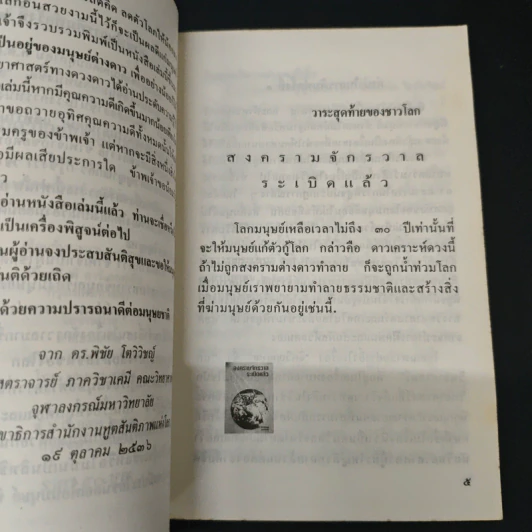 โลกอันสวยงามนี้ไว้ก็จะเป็นผลดีแก่
เจ้าจึงรวบรวมพิมพ์เป็นหนังสือเล่มนี้
ป็นอยู่ของมนุษย์ต่างดาว เพื่ออย่างน้อย
ยาศาสตร์ทางดวงดาวได้อ่านประดับความรู้
เล่มนี้หากมีคุณความดีเกิดขึ้นมากน้อย
าขอถวายอุทิศคุณความดีทั้งหมดนั้น
มครูของข้าพเจ้า แต่หากจะมีสิ่งหนึ่ง
อมีผลเสียประการใด ข้าพเจ้าขอ
ว
อ่านหนังสือเล่มนี้แล้ว ท่านจะเชื่อ
เป็นเครื่องพิสูจน์ต่อไป
นผู้อ่านจงประสบสันติสุขและขอให้
นติด้วยเถิด
ด้วยความปรารถนาดีต่อมนุษยชาติ
จาก ดร.พิชัย โตวิวิชญ์
สตราจารย์ ภาควิชาเคมี คณะวิทยา
จุฬาลงกรณ์มหาวิทยาลัย
ขาธิการสำนักงานทูตสันติภาพแห่งโล
๑๙ ตุลาคม ๒๕๒๖
วาระสุดท้ายของชาวโลก
สงครามจักรวาล
ระเบิดแล้ว
โลกมนุษย์เหลือเวลาไม่ถึง ๓๐ ปีเท่านั้นที่
จะให้มนุษย์แก้ตัวกู้โลก กล่าวคือ ดาวเคราะห์ดวงนี้
ถ้าไม่ถูกสงครามต่างดาวทำลาย ก็จะถูกน้ำท่วมโลก
เมื่อมนุษย์เราพยายามทำลายธรรมชาติและสร้างสิ่ง
ที่ฆ่ามนุษย์ด้วยกันอยู่เช่นนี้.
สงครามจักรวาล
ระเบิดแล้ว
๕